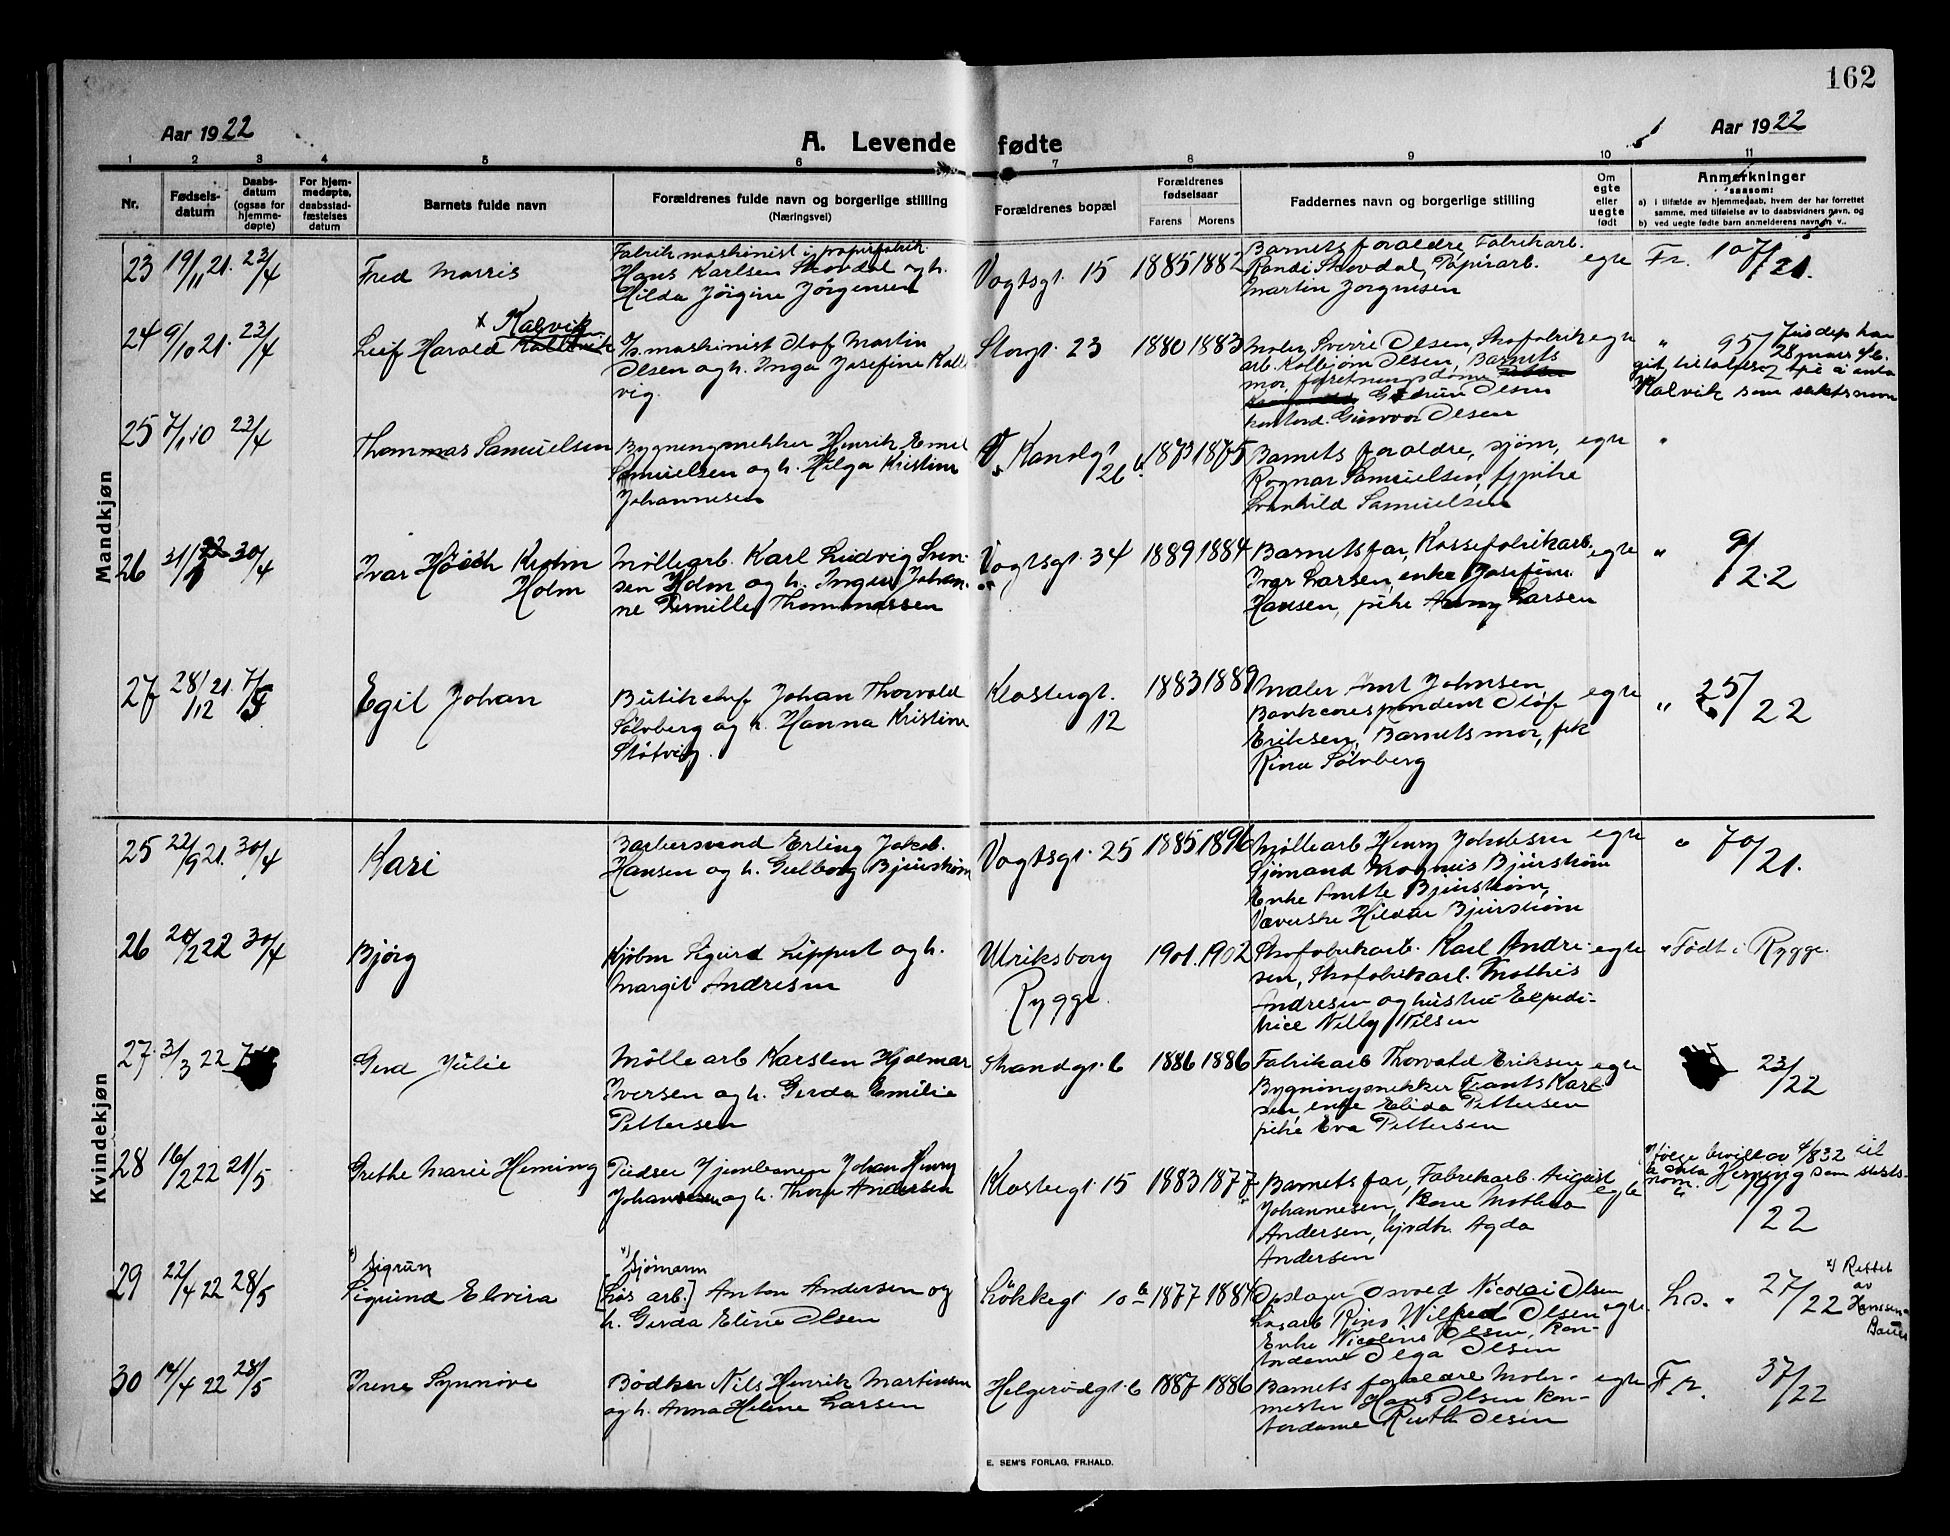 162
Aar 1922
A. Levende fødte
Aar 1922
1 2 3 4 5 6 7 8 9 10 11
Nr.
Fødsels-
datum
Daabs-
datum
(ogsaa for
hjemme-
døpte)
For hjem-
medøpte,
daabsstad-
fæstelses
datum
Barnets fulde navn
Forældrenes fulde navn og borgerlige stilling
(Næringsvei)
Forældrenes bopæl
Forældrenes
fødselsaar
Farens Morens
Faddernes navn og borgerlige stilling
Om
egte
eller
uegte
født
Anmerkninger
saasom:
a) i tilfælde av hjemmedaab, hvem der har forrettet
samme, med tilføielse av to daabsvidners navn, og
b) ved uegte fødte barn anmelderens navn m. v..
Mandkjøn
23 19/11 21. 23/4
Fred Morris
Fabrikmaskinist i papirfabrik
Hans Karlsen Skovdal og h.
Hilda Jörgine Jörgensen
Vogtsgt. 15 1885 1882
Barnets forældre, Fabrikarb.
Randi Skovdal, Papirarb.
Martin Jorgensen
egte
Fr. 107/21.
24 9/10 21. 23/4
x Kalvik
Leif Harold
maskinist Olaf Martin
Olsen og h. Inga Josefine Kall
vig.
Storgt. 23 1880 1883
Maler Sverre Olsen, Skofabrik
arb. Kolbjørn Olsen, Barnets
mor, forretningsdame
Gudrun Olsen
Gunvor Olsen
egte
" 95/
Jusdep har
28 mars 46.
git tillatelse til å anta
Kalvik som slektsnavn
25 7/1 10 23/4
Thommas Samuelsen
Bygningsnekker Henrik Emil
Samuelsen og h. Helga Kristine
Johannesen
V. Kanalgt
26 b 1873 1875
Barnets forældre, sjøm.
Ragnar Samuelsen, tj pike
Samuelsen
egte
"
26 31/1 22 30/4
Ivar Holm
Möllearb. Karl Ludvig Sven-
sen Holm og h. Inger Johan-
ne Pernille Thommassen
Vogtsgt. 34 1889 1884
Barnets far, Kassefabrikarb.
Ivar Larsen, enke Josefine
Hansen, pike Larsen
egte
" 9/22
27 28/12 21. 7/5
Egil Johan
Butikchef Johan Thorvald
Sölvberg og h. Hanna Kristine
Slötvig.
Klostergt.
12 1883 1889
Maler Arnt Johnsen
Bankcorespondent Olof
Eriksen, Barnets mor, frk
Rina Sölvberg
egte
" 25/22
Kvindekjøn
25 22/9 21. 30/4
Kari
Barbersvend Erling Jakob.
Hansen og h. Gulborg Bjurstrøm
Vogtsgt. 25 1885 1896
Möllearb Henry Johnsen
Sjømand Magnus Bjurstrøm
Enke Bjurstrøm,
Væverske Hilda Bjurstrøm
egte
" 70/21.
26 20/2 22 30/4
Bjørg
Kjøbm Sigurd Lippert og h.
Margit Andresen
Ulriksborg
Rygge. 1901. 1902
Skofabrikarb. Karl Andre-
sen, Skofabrikarb. Mathis
Andresen og hustru Expedi-
trice Nelly Nilsen
egte
" Født i Rygge.
27. 3/3 22 7/
Gerd Julie
Mölle arb Karsten Hjalmar
Iversen og h. Gerda Emilie
Pettersen
Strandgt. 6 1886 1886
Fabrikarb Thorvald Eriksen
Bygningsnekker Frants Karl
sen, enke Elida Pettersen
pike Eva Pettersen
egte
23/22
28 16/2 22 21/5
Grethe Marie Heming
Pudser Johan Henry
Johannesen og h. Thora Andersen
Klostergt. 15 1883 1877
Barnets far, Fabrikarb. August
Johannesen, Kone Mathea
Andersen, Agda
Andersen
egte
Ifølge bevill av 4/8 32 til
å anta Heming som slekts-
navn.
/22
29 22/4 22 28/5
x) Sigrun
Sigrund Elvira
x) Sjømann
[Løs arb.] Anton Andersen og
h. Gerda Eline Olsen
Løkkegt 10 b 1877 1884
Opslager Osvald Nicolai Olsen
Løsarb Wilfred Olsen
Enke Nicoline Olsen, Kon-
tordame Olga Olsen
egte.
Ls. " 27/22
x) Rettet
av
Hanssen-
Bauer
30 14/4 22 28/5
Irene Synnøve
Bødker Nils Henrik Martinsen
og h. Anna Helene Larsen
Helgerødgt. 6 1887 1886
Barnets forældre Maler-
mester Hans Olsen Kon-
tordame Ruth Olsen
egte
Fr. 37/22
E. SEM'S FORLAG, FR.HALD.